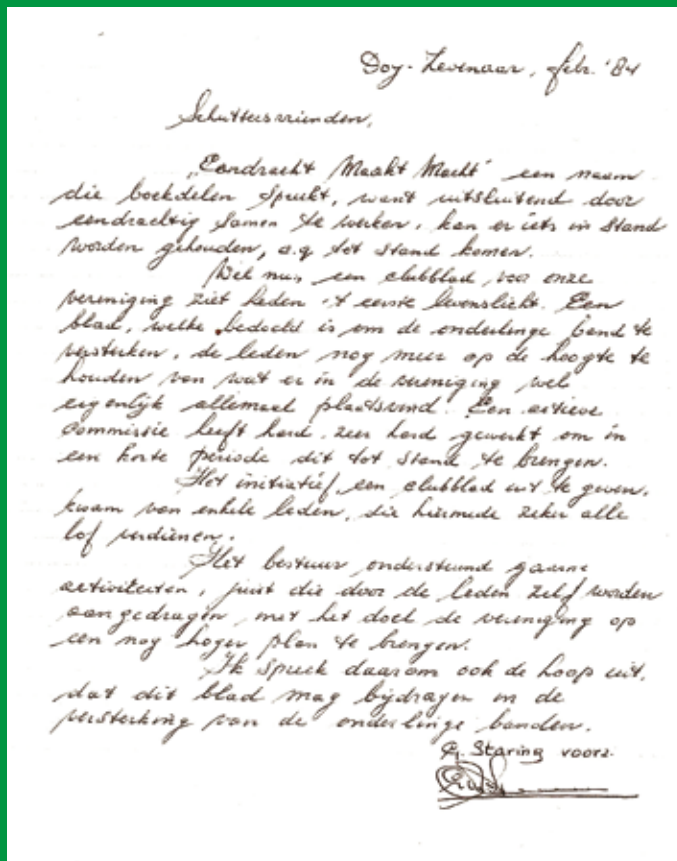 Ooy-Zevenaar, febr. '84
Schuttersvrienden,
„Eendracht Maakt Macht" een naam
die boekdelen spreekt, want uitsluitend door
eendrachtig samen te werken, kan er iets in stand
worden gehouden, o.q tot stand komen.
Wel nu, een clubblad voor onze
vereniging ziet heden 't eerste levenslicht. Een
blad, welke bedoeld is om de onderlinge band te
versterken, de leden nog meer op de hoogte te
houden van wat er in de vereniging wel
eigenlijk allemaal plaatsvind. Een actieve
commissie heeft hard, zeer hard gewerkt om in
een korte periode dit tot stand te brengen.
Het initiatief een clubblad uit te geven,
kwam van enkele leden, die hiermede zeker alle
lof verdienen.
Het bestuur ondersteund gaarne
activiteiten, juist die door de leden zelf worden
aangedragen, met het doel de vereniging op
een nog hoger plan te brengen.
Ik spreek daarom ook de hoop uit,
dat dit blad mag bijdragen in de
versterking van de onderlinge banden.
G. Staring voorz.